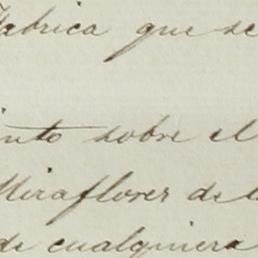 fabrica que se
into sobre el
Miraflores de l
de cualquiera